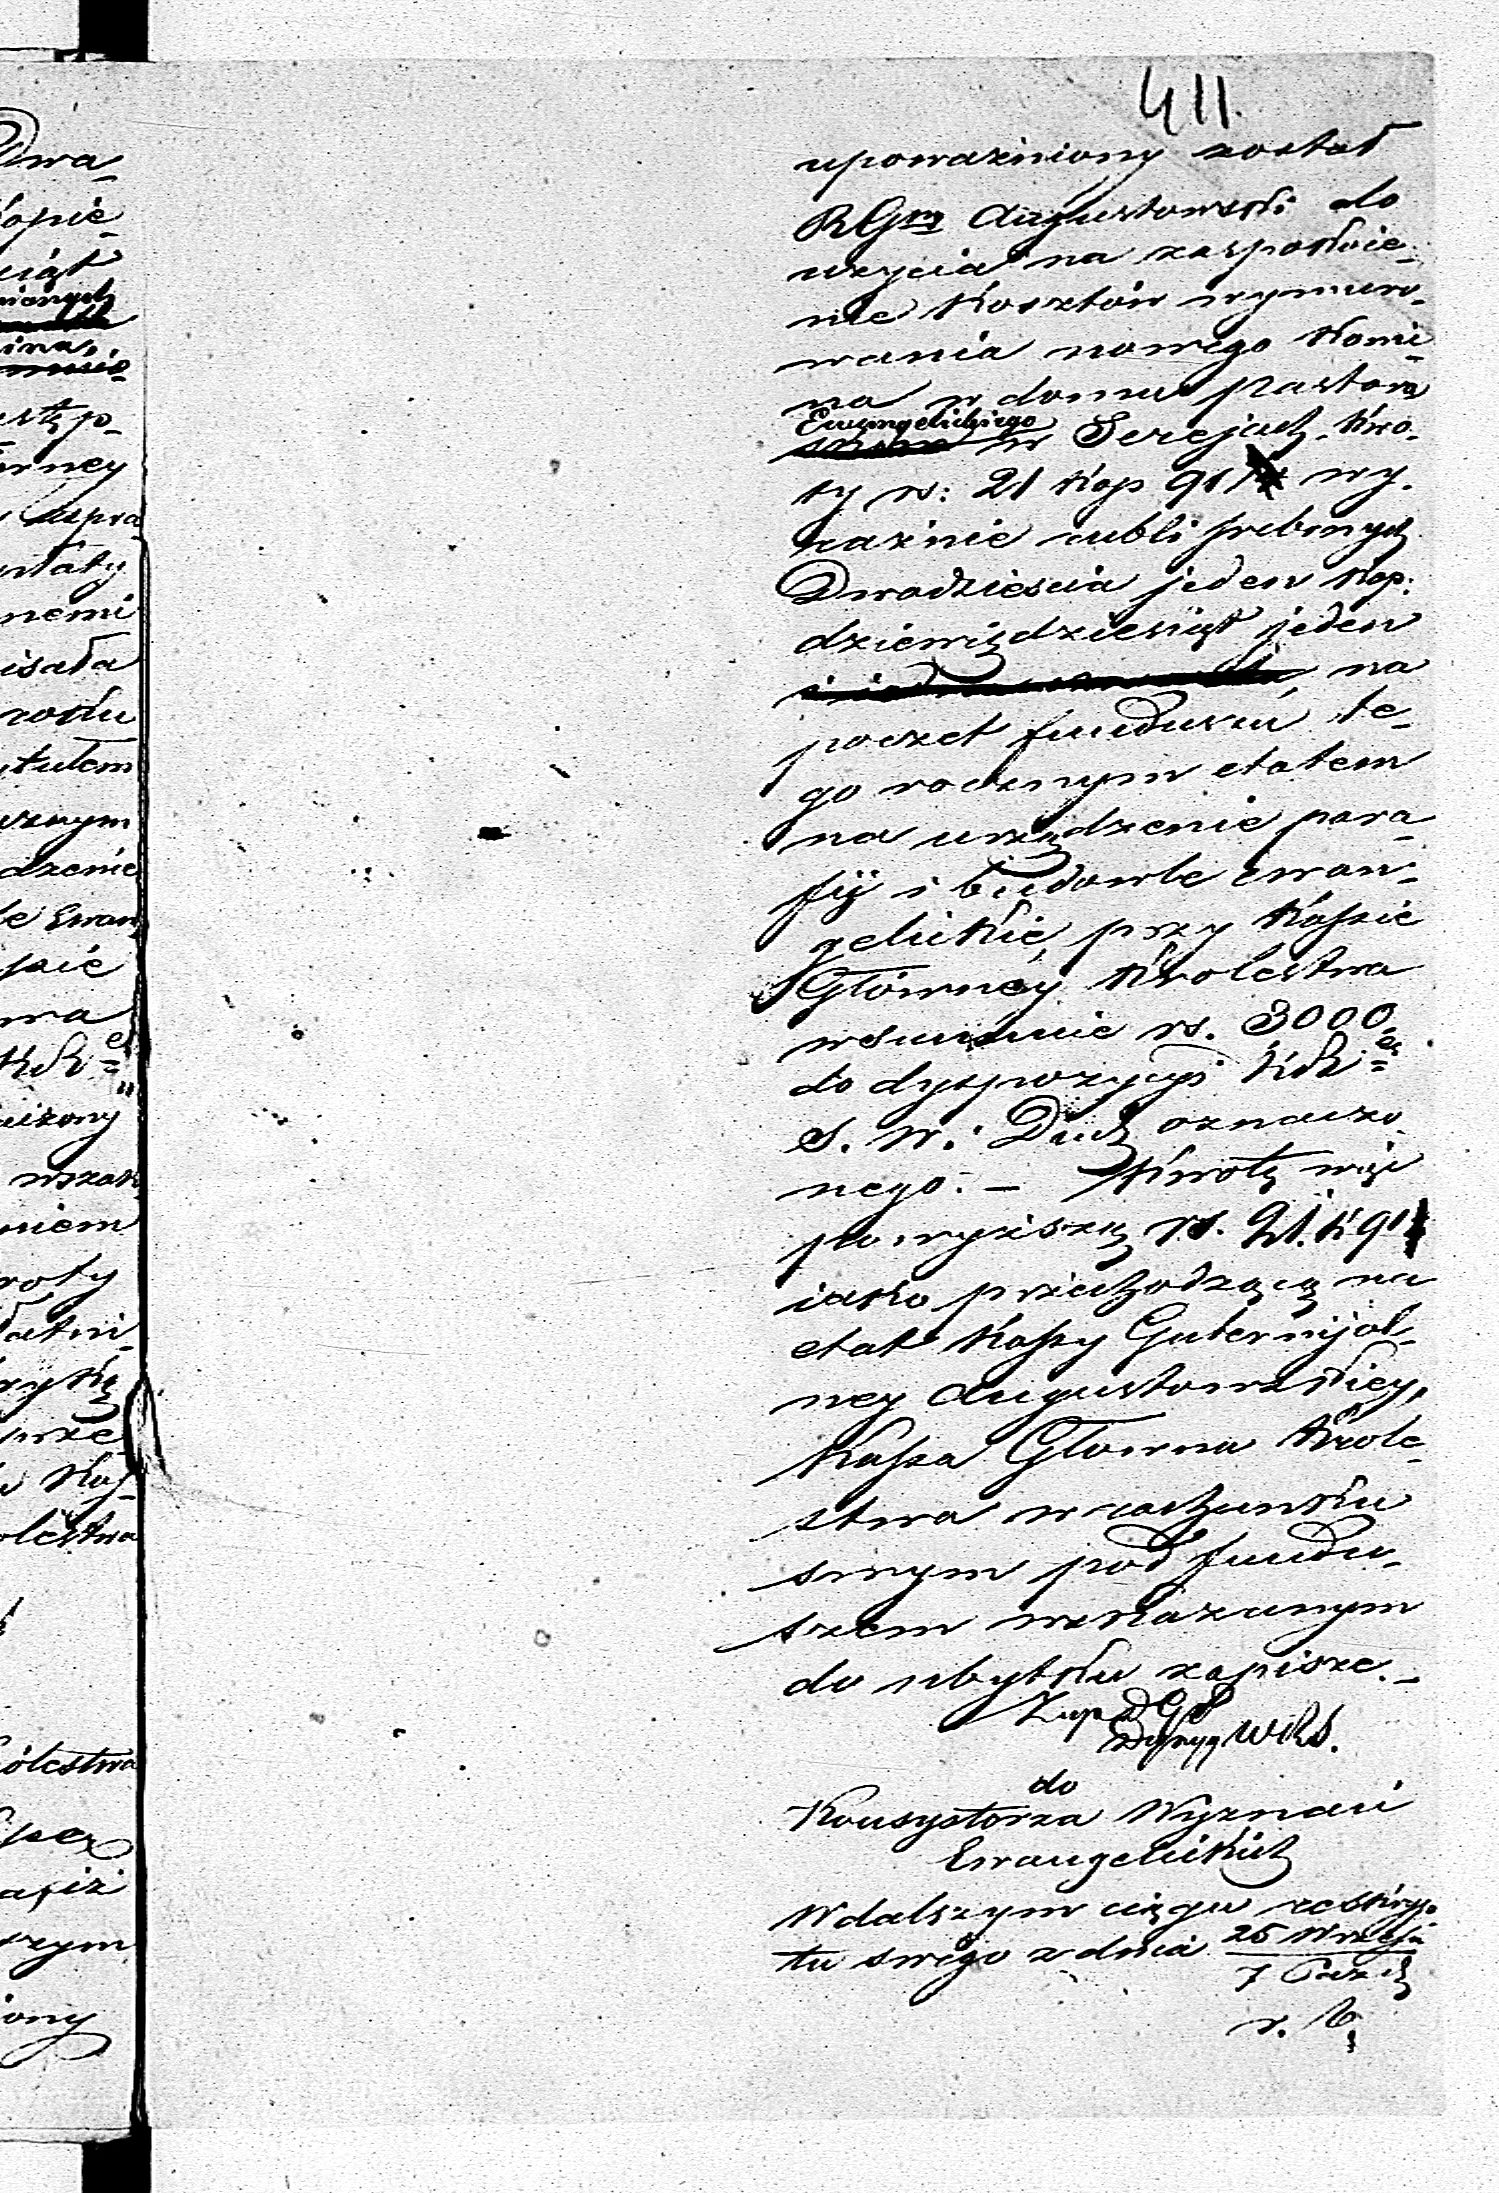 411.
upoważniony został
RGny Augustowski do
użycia na zaspokoie-
nie Kosztów wymuro-
wania nowego Komi-
na w domu Pastora
Ewangelickiego
w Serejach. Kwo-
ty rs: 21 Kop 91 wy-
raźnie rubli srebrnych
Dwadzieścia jeden Kop:
dziewięćdziesiąt jeden
na
poczet funduszu te-
go rocznym etatem
na urządzenie para-
fij i budowle ewan-
gelickie, przy Kassie
Główney Królestwa
w summie rs. 3000
do dyspozycyi
S. W. i Duch oznaczo-
nego. – Kwotę więc
powyższą rs. 21. k 91
iako przechodzącą na
etat Kassy Gubernijal-
ney Augustowskiey,
Kassa Główna Króle-
stwa w rachunku
swym pod fundu-
szem wskazanym
do ubytku zapisze. –
do
Konsystorza Wyznań
Ewangelickich
W dalszym ciągu reskryp-
tu swego z dnia 25 Wrześn
7 Paźd
r. b.